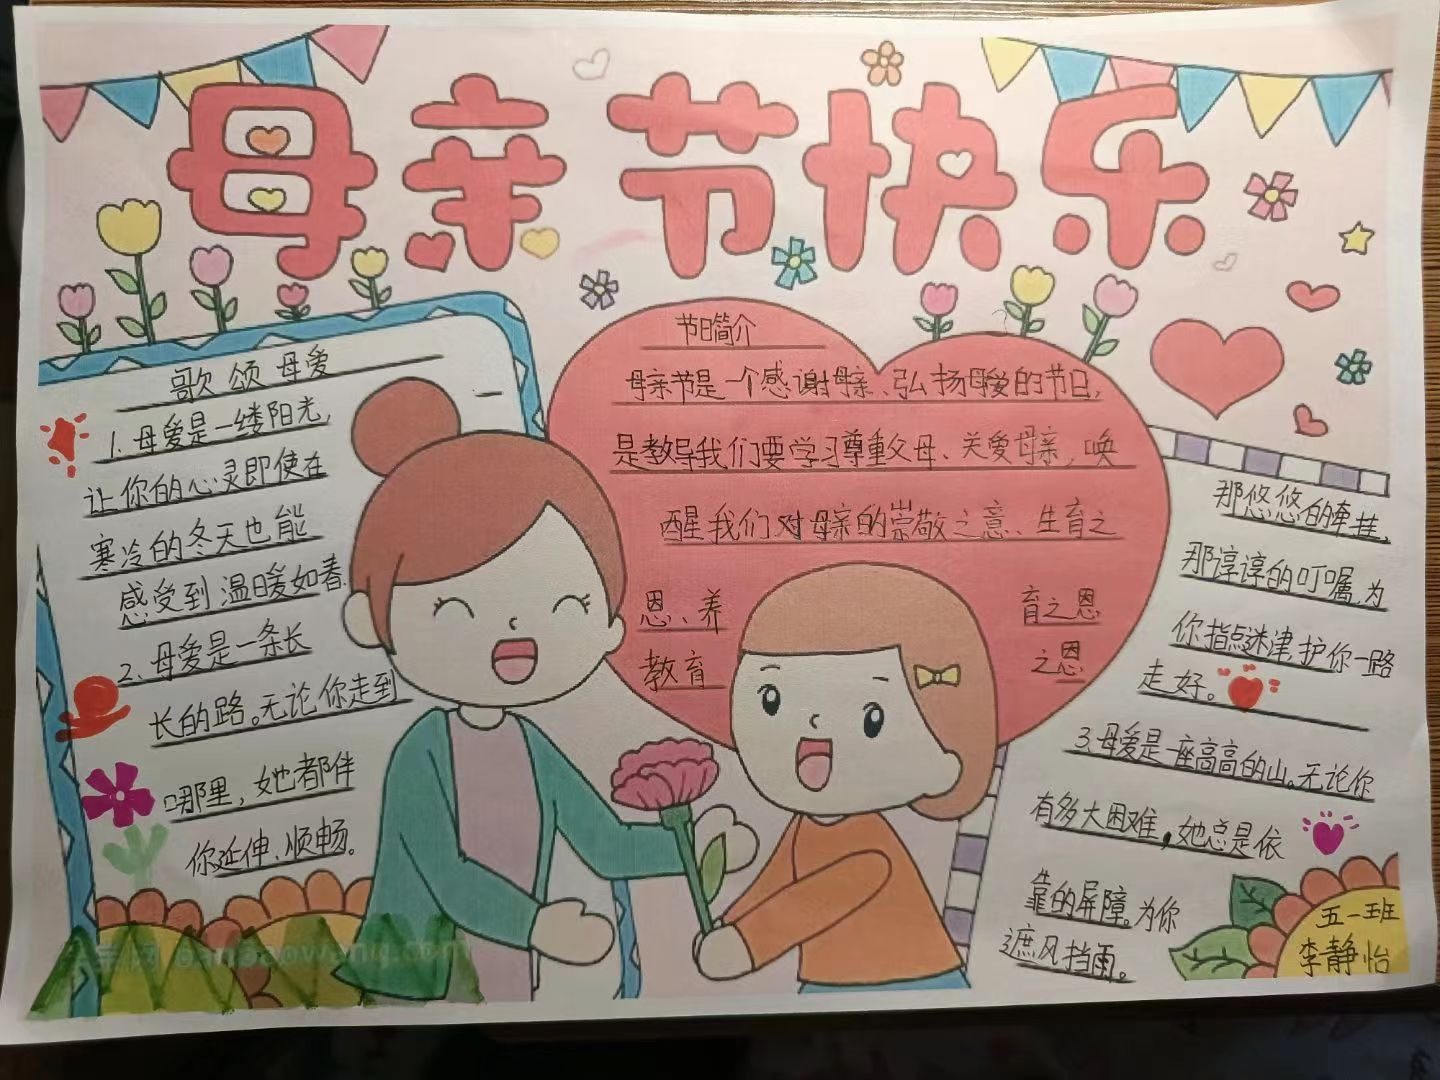 母亲节快乐
歌颂母爱
1.母爱是一缕阳光,
让你的心灵即使在
寒冷的冬天也能
感受到温暖如春.
2.母爱是一条长
长的路。无论你走到
哪里,她都伴
你延伸、顺畅。
节日简介
母亲节是一个感谢母亲、弘扬母爱的节日,
是教导我们要学习尊重父母、关爱母亲,唤
醒我们对母亲的崇敬之意、生育之
恩、养 育之恩
教育 之恩
那悠悠的牵挂,
那谆谆的叮嘱,为
你指点迷津,护你一路
走好。
3.母爱是一座高高的山。无论你
有多大困难,她总是依
靠的屏障。为你
遮风挡雨。
五一班
李静怡